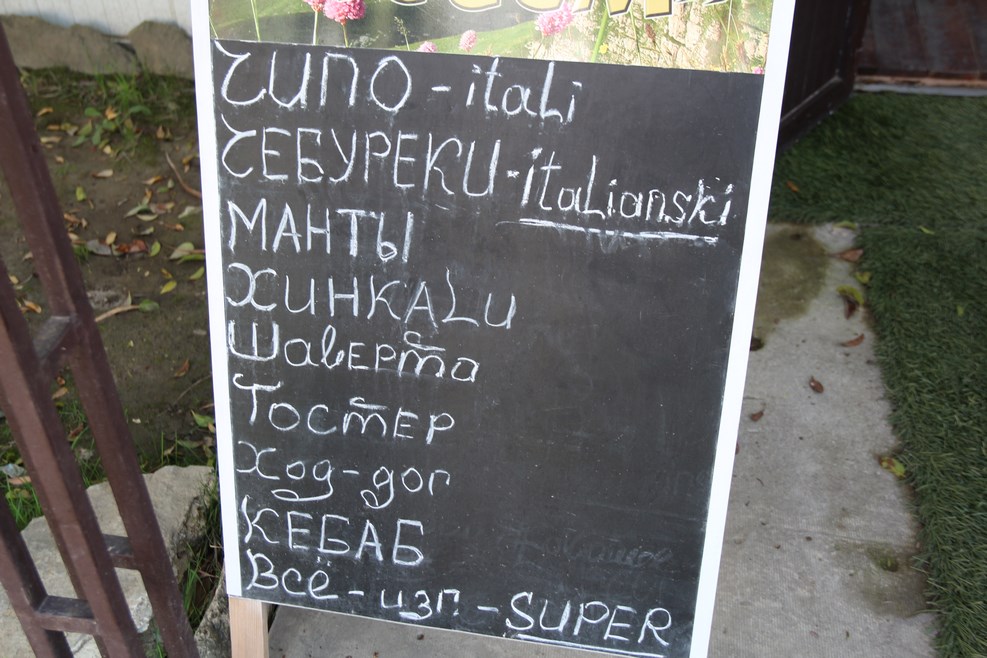 ЧИПО - itali
ЧЕБУРЕКИ - italianski
МАНТЫ
ХИНКАLИ
Шаверта
Тостер
Ход-дог
КЕБАБ
Всё - изп - SUPER